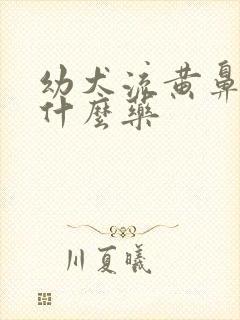 幼犬流黄鼻
什麼药
川夏曦